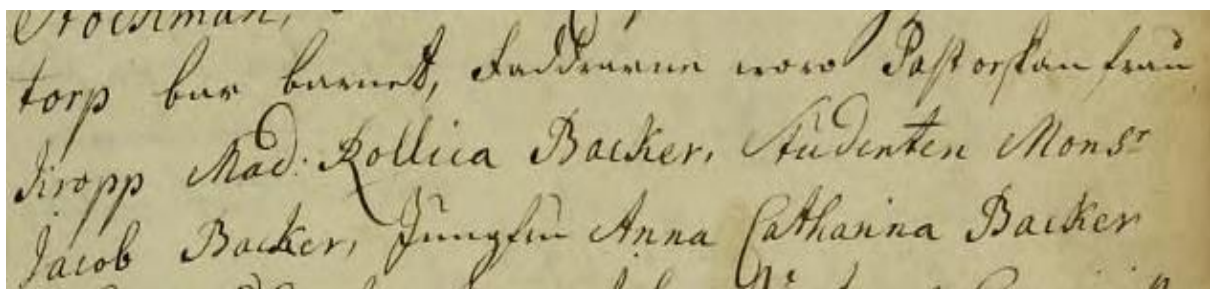 Stockman,
torp bar barnet, Faddrarne woro Pastorskan frau
Kropp Mad: Rollica Backer, Studenten Monsr
Jacob Backer, Jungfru Anna Catharina Backer